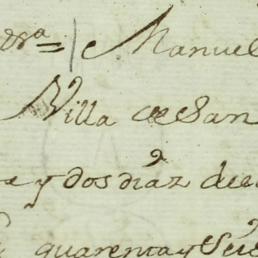 Manuel
Villa de San
e y dos díaz de
quarenta y Seis